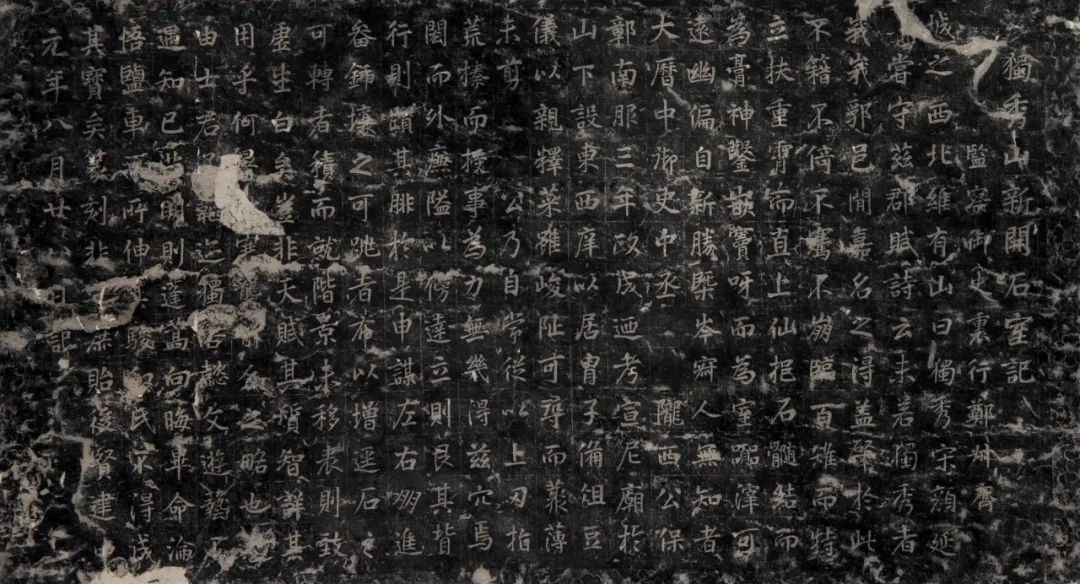 獨秀山新開石室記
監察御史裏行鄭州齊
城之西北維有山曰獨秀宋顏延
嘗守茲郡賦詩云未若獨秀者
峩峩郛邑間嘉名之得蓋肇於此
不籍不倚不騫不崩臨百雉而特
立扶重霄而直上仙挹石髓結而
為膏神鑿嵌竇呀而為室䟽滓可
遠幽偏自新勝槩岑寂人無知者
大曆中御史中丞隴西公保
鄣南服三年政成迺考宣尼廟於
山下設東西庠以居胄子備俎豆
儀以親釋菜雖峻阯可尋而藂薄
未剪公乃自常從以上刃指
荒榛而授事為力無幾得茲穴焉
閎而外廉隘以傍達立則艮其背
行則頤其腓於是申謀左右朋進
畚鍤壤之可跳者布以增逕石之
可轉者積而就階景未移表則致
虛生白矣豈非天賦其質智詳其
用乎何人之略也
由士君迩獨居懿文遊藝不
遇知已明則蓬蒿向晦畢命淪
悟鹽車無所伸其駿和民不得成
其寶矣篆刻非庶貽後賢建中
元年八月廿八日記